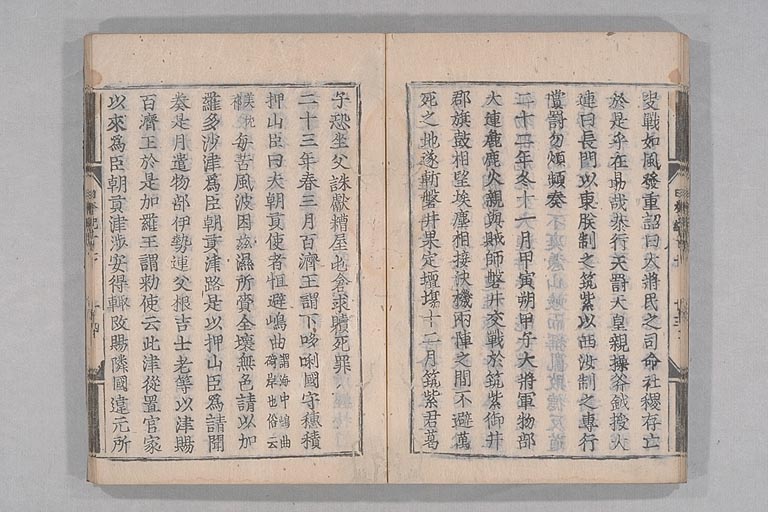 叟戰如風發重詔曰大將民之司命社稷存亡
於是乎在勗哉恭行天罰天皇親操斧鉞授大
連曰長門以東朕制之筑紫以西汝制之專行
賞罰勿煩頻奏
二十二年冬十一月甲寅朔甲子大將軍物部
大連麁鹿火親與賊師磐井交戰於筑紫御井
郡旗鼓相望埃塵相接決機兩陣之間不避萬
死之地遂斬磐井果定壃場十二月筑紫君葛
子恐坐父誅獻糟屋屯倉求贖死罪
二十三年春三月百濟王謂下哆唎國守穗積
押山臣曰夫朝貢使者恒避嶋曲謂海中嶋曲
碕岸也俗云
每苦風波因茲濕所賷全壞無色請以加
羅多沙津爲臣朝貢津路是以押山臣爲請聞
奏是月遣物部伊勢連父根吉士老等以津賜
百濟王於是加羅王謂勅使云此津從置官家
以來爲臣朝貢津涉安得輙改賜隣國違元所